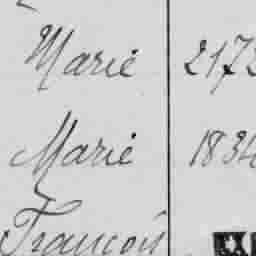 Marie 2172
Marie 1834
François